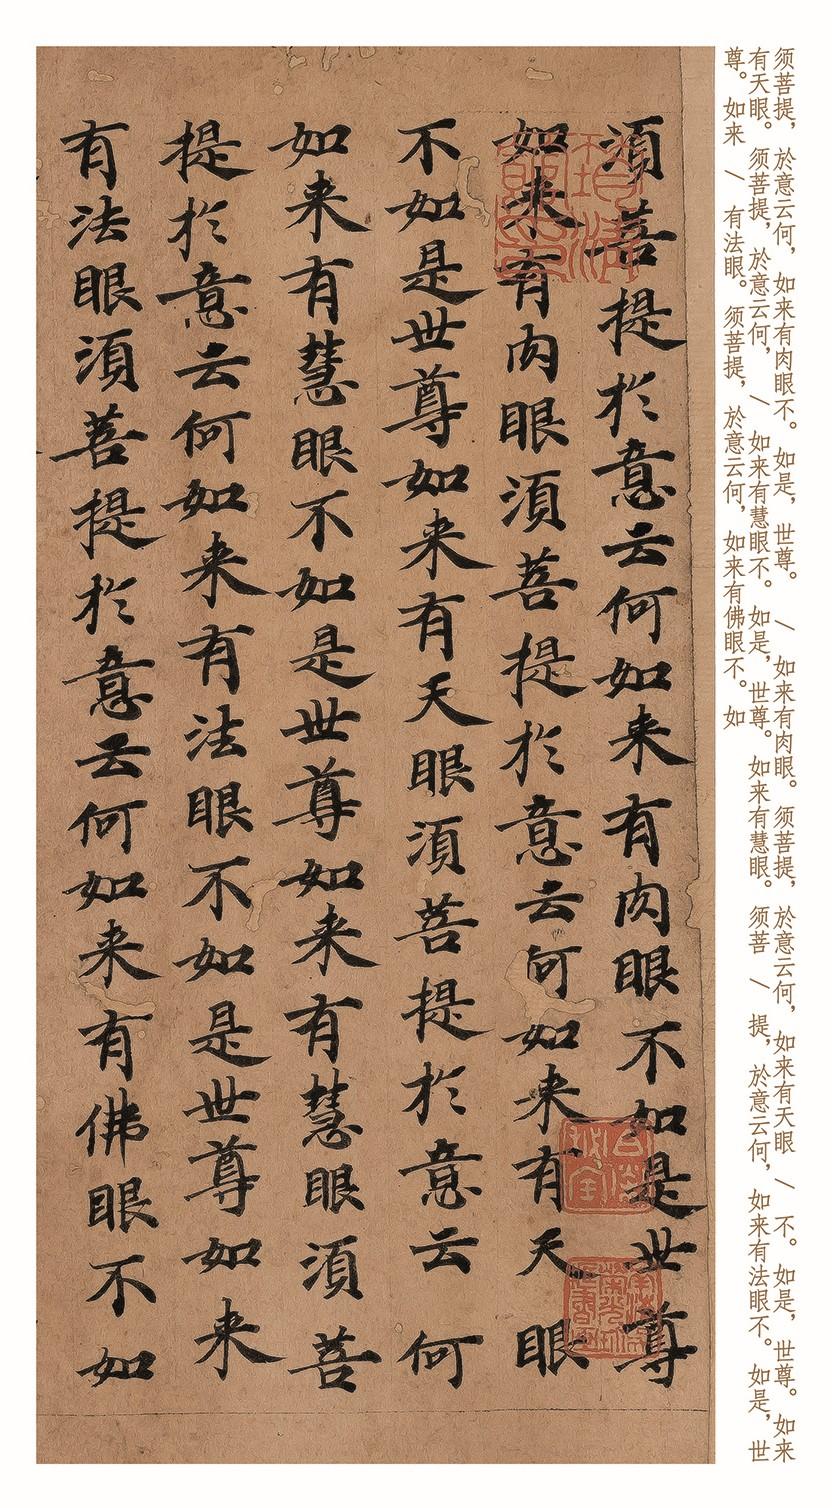 須菩提於意云何如来有肉眼不如是世尊
如来有肉眼須菩提於意云何如来有天眼
不如是世尊如来有天眼須菩提於意云何
如来有慧眼不如是世尊如来有慧眼須菩
提於意云何如来有法眼不如是世尊如来
有法眼須菩提於意云何如来有佛眼不如
须菩提，於意云何，如来有肉眼不。如是，世尊。／如来有肉眼。须菩提，於意云何，如来有天眼／不。如是，世尊。如来
有天眼。须菩提，於意云何，／如来有慧眼不。如是，世尊。如来有慧眼。须菩／提，於意云何，如来有法眼不。如是，世
尊。如来／有法眼。须菩提，於意云何，如来有佛眼不。如